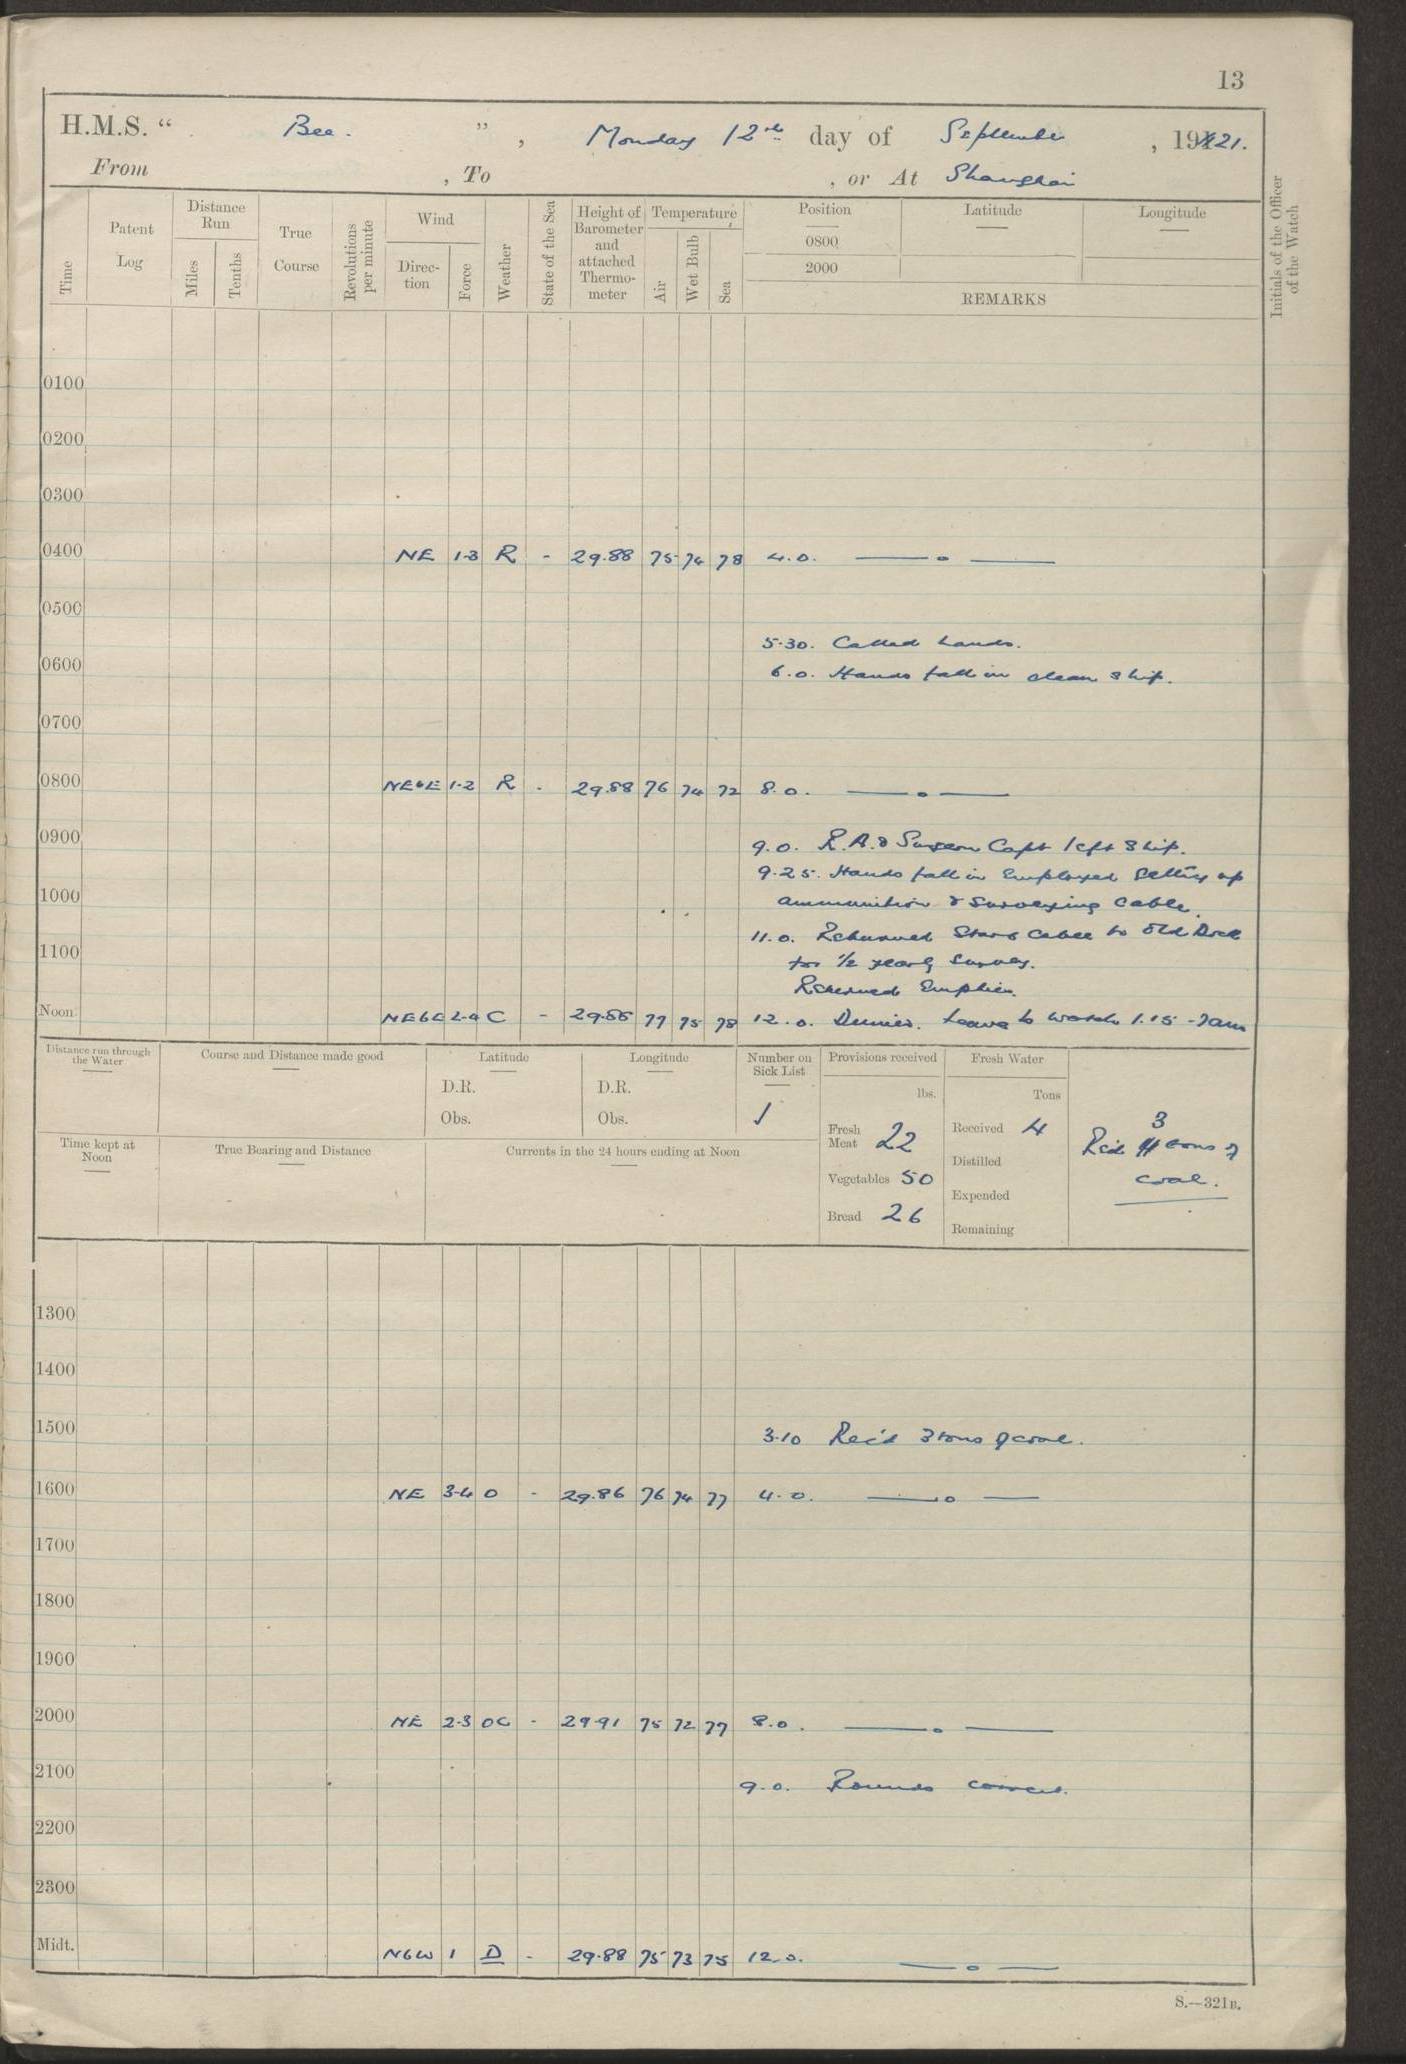 13
H.M.S. " Bee. " , Monday 12th day of September , 1921.
From , To , or At Shanghai
Time
Patent Log
Distance Run
Miles
Tenths
True Course
Revolutions per minute
Wind
Direc-tion
Force
Weather
State of the Sea
Height of Barometer and attached Thermo-meter
Temperature
Air
Wet Bulb
Sea
Position
0800
2000
Latitude
Longitude
REMARKS
Initials of the Officer of the Watch
0100
0200
0300
0400 NE 1-3 R - 29.88 75 74 78 4.0. — o —
0500
5.30. Called hands.
0600
6.0. Hands fall in clean ship.
0700
0800 NEbE 1-2 R - 29.88 76 74 72 8.0. — o —
0900
9.0. R.A. & Surgeon Capt left ship.
9.25. Hands fall in Employed getting up
1000
ammunition & surveying cable.
11.0. Returned Starb cable to Old Dock
1100
for 1/2 yearly survey.
Returned Empties.
Noon NEbE 2-4 C - 29.86 77 75 78 12.0. Dinner. Leave to watch 1.15 - 7am
Distance run through the Water
Course and Distance made good
Latitude
D.R.
Obs.
Longitude
D.R.
Obs.
Number on Sick List
1
Provisions received
lbs.
Fresh Meat 22
Vegetables 50
Bread 26
Fresh Water
Tons
Received 4
Distilled
Expended
Remaining
3
Rec'd tons of
coal.
Time kept at Noon
True Bearing and Distance
Currents in the 24 hours ending at Noon
1300
1400
1500
3.10 Rec'd 3 tons of coal.
1600 NE 3-4 O - 29.86 76 74 77 4.0. — o —
1700
1800
1900
2000 NE 2-3 OC - 29.91 75 72 77 8.0. — o —
2100
9.0. Rounds correct.
2200
2300
Midt. NbW 1 D - 29.88 75 73 75 12.0. — o —
S.—321B.